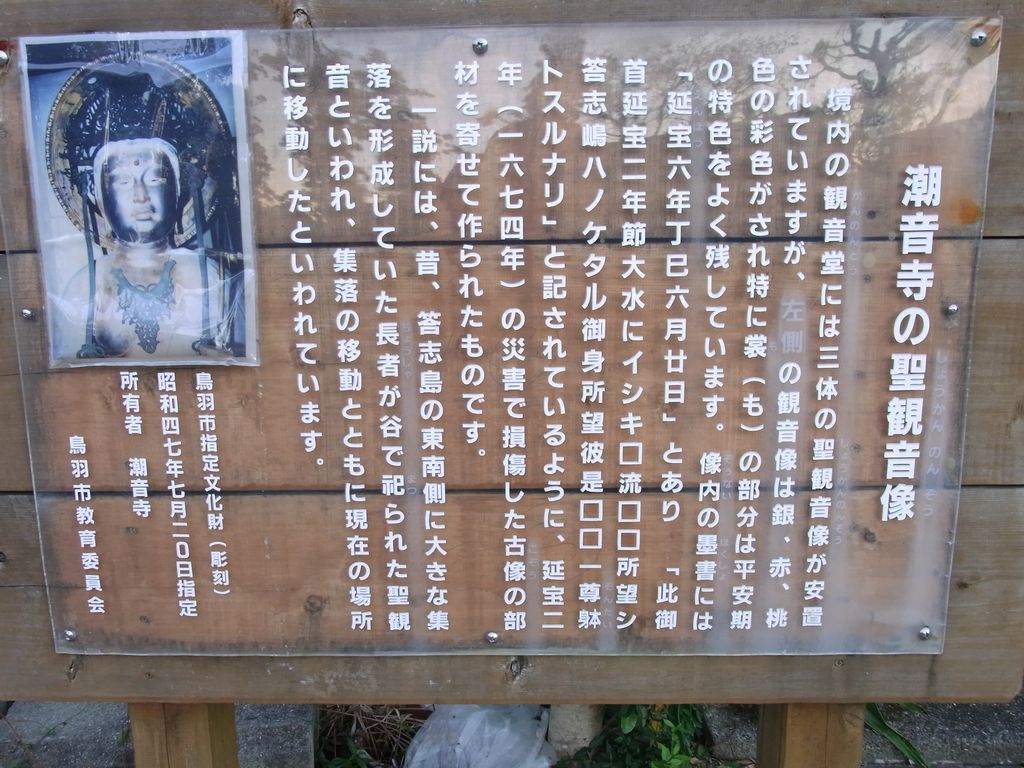 潮音寺の聖観音像
境内の観音堂には三体の聖観音像が安置
されていますが、左側の観音像は銀、赤、桃
色の彩色がされ特に裳（も）の部分は平安期
の特色をよく残しています。像内の墨書には
「延宝六年丁巳六月廿日」とあり　「此御
首延宝二年節大水にイシキ□流□□所望シ
答志嶋ハノケタル御身所望彼是□□一尊躰
トスルナリ」と記されているように、延宝二
年（一六七四年）の災害で損傷した古像の部
材を寄せて作られたものです。
一説には、昔、答志島の東南側に大きな集
落を形成していた長者が谷で祀られた聖観
音といわれ、集落の移動とともに現在の場所
に移動したといわれています。
鳥羽市指定文化財（彫刻）
昭和四七年七月二〇日指定
所有者　潮音寺
鳥羽市教育委員会